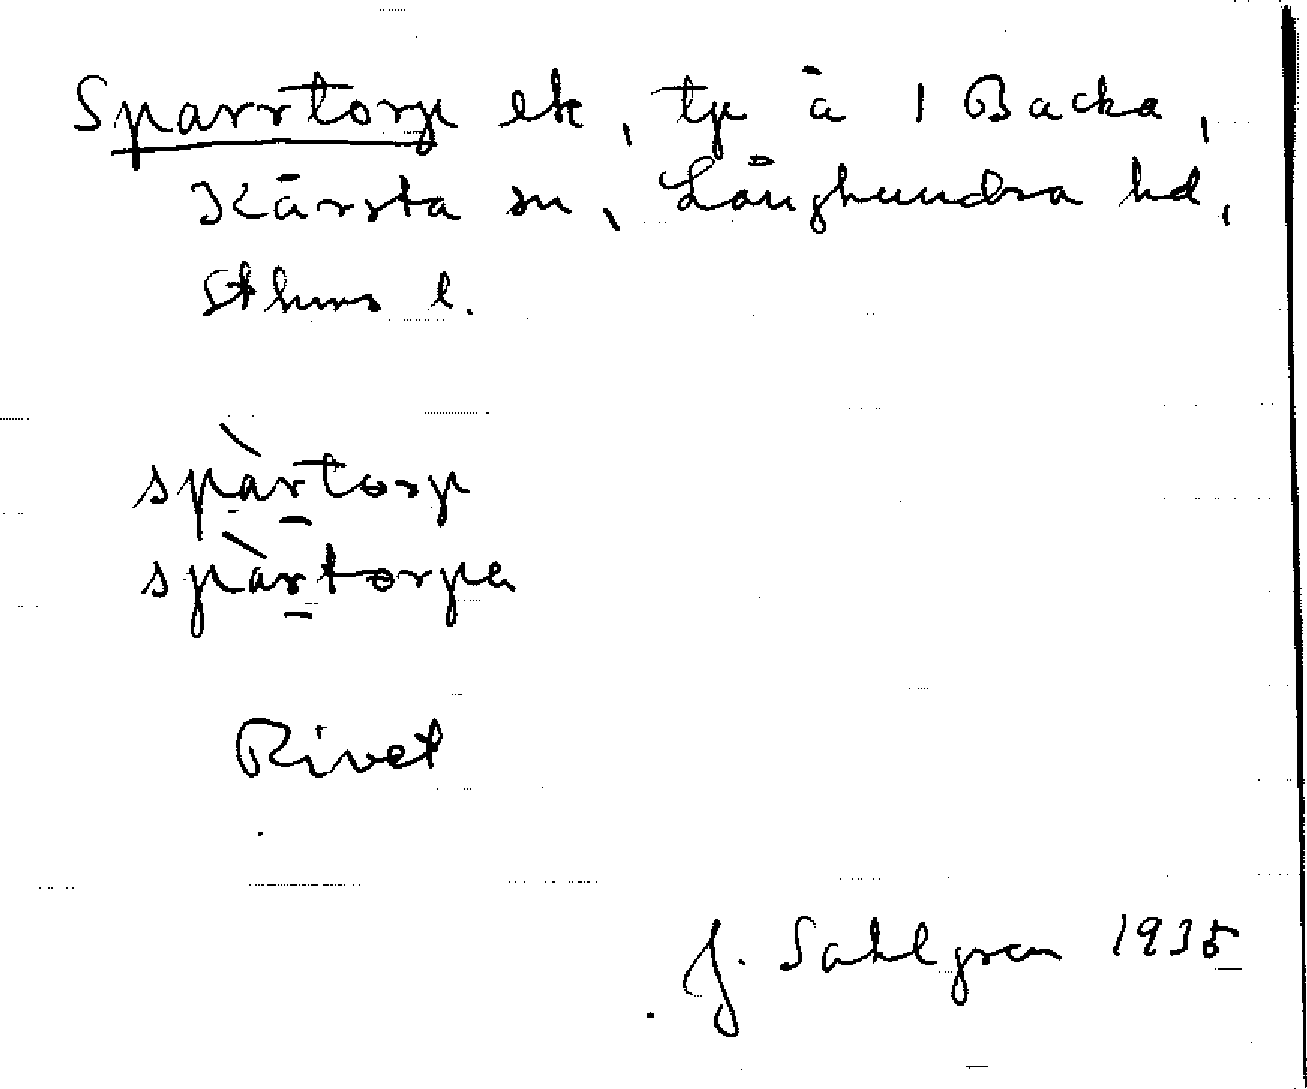 Sparrtorp ek, tp å 1 Backa,
Kårsta sn, Långhundra hd,
Sthms l.
spàr̠torp
spàr̠torpa
Rivet
J. Sahlgren 1935